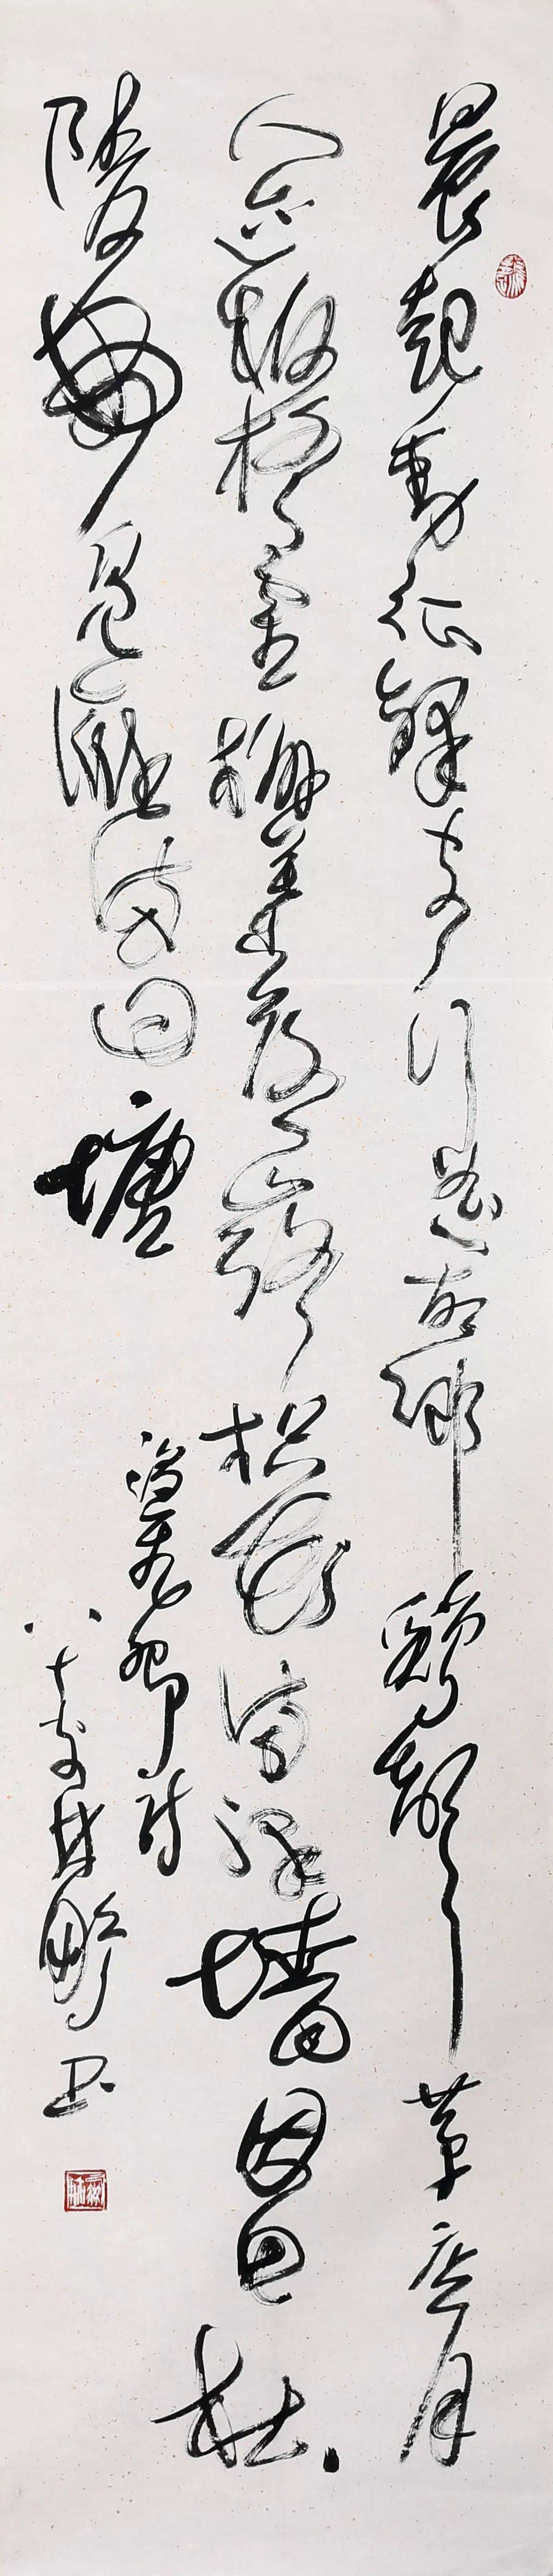 晨起動征鐸客行悲故鄉鷄聲茅店月
人迹板橋霜槲葉落山路枳花滿驛墻因思杜
陵夢鳧雁滿回塘
溫飛卿詩
八十叟林鵬書